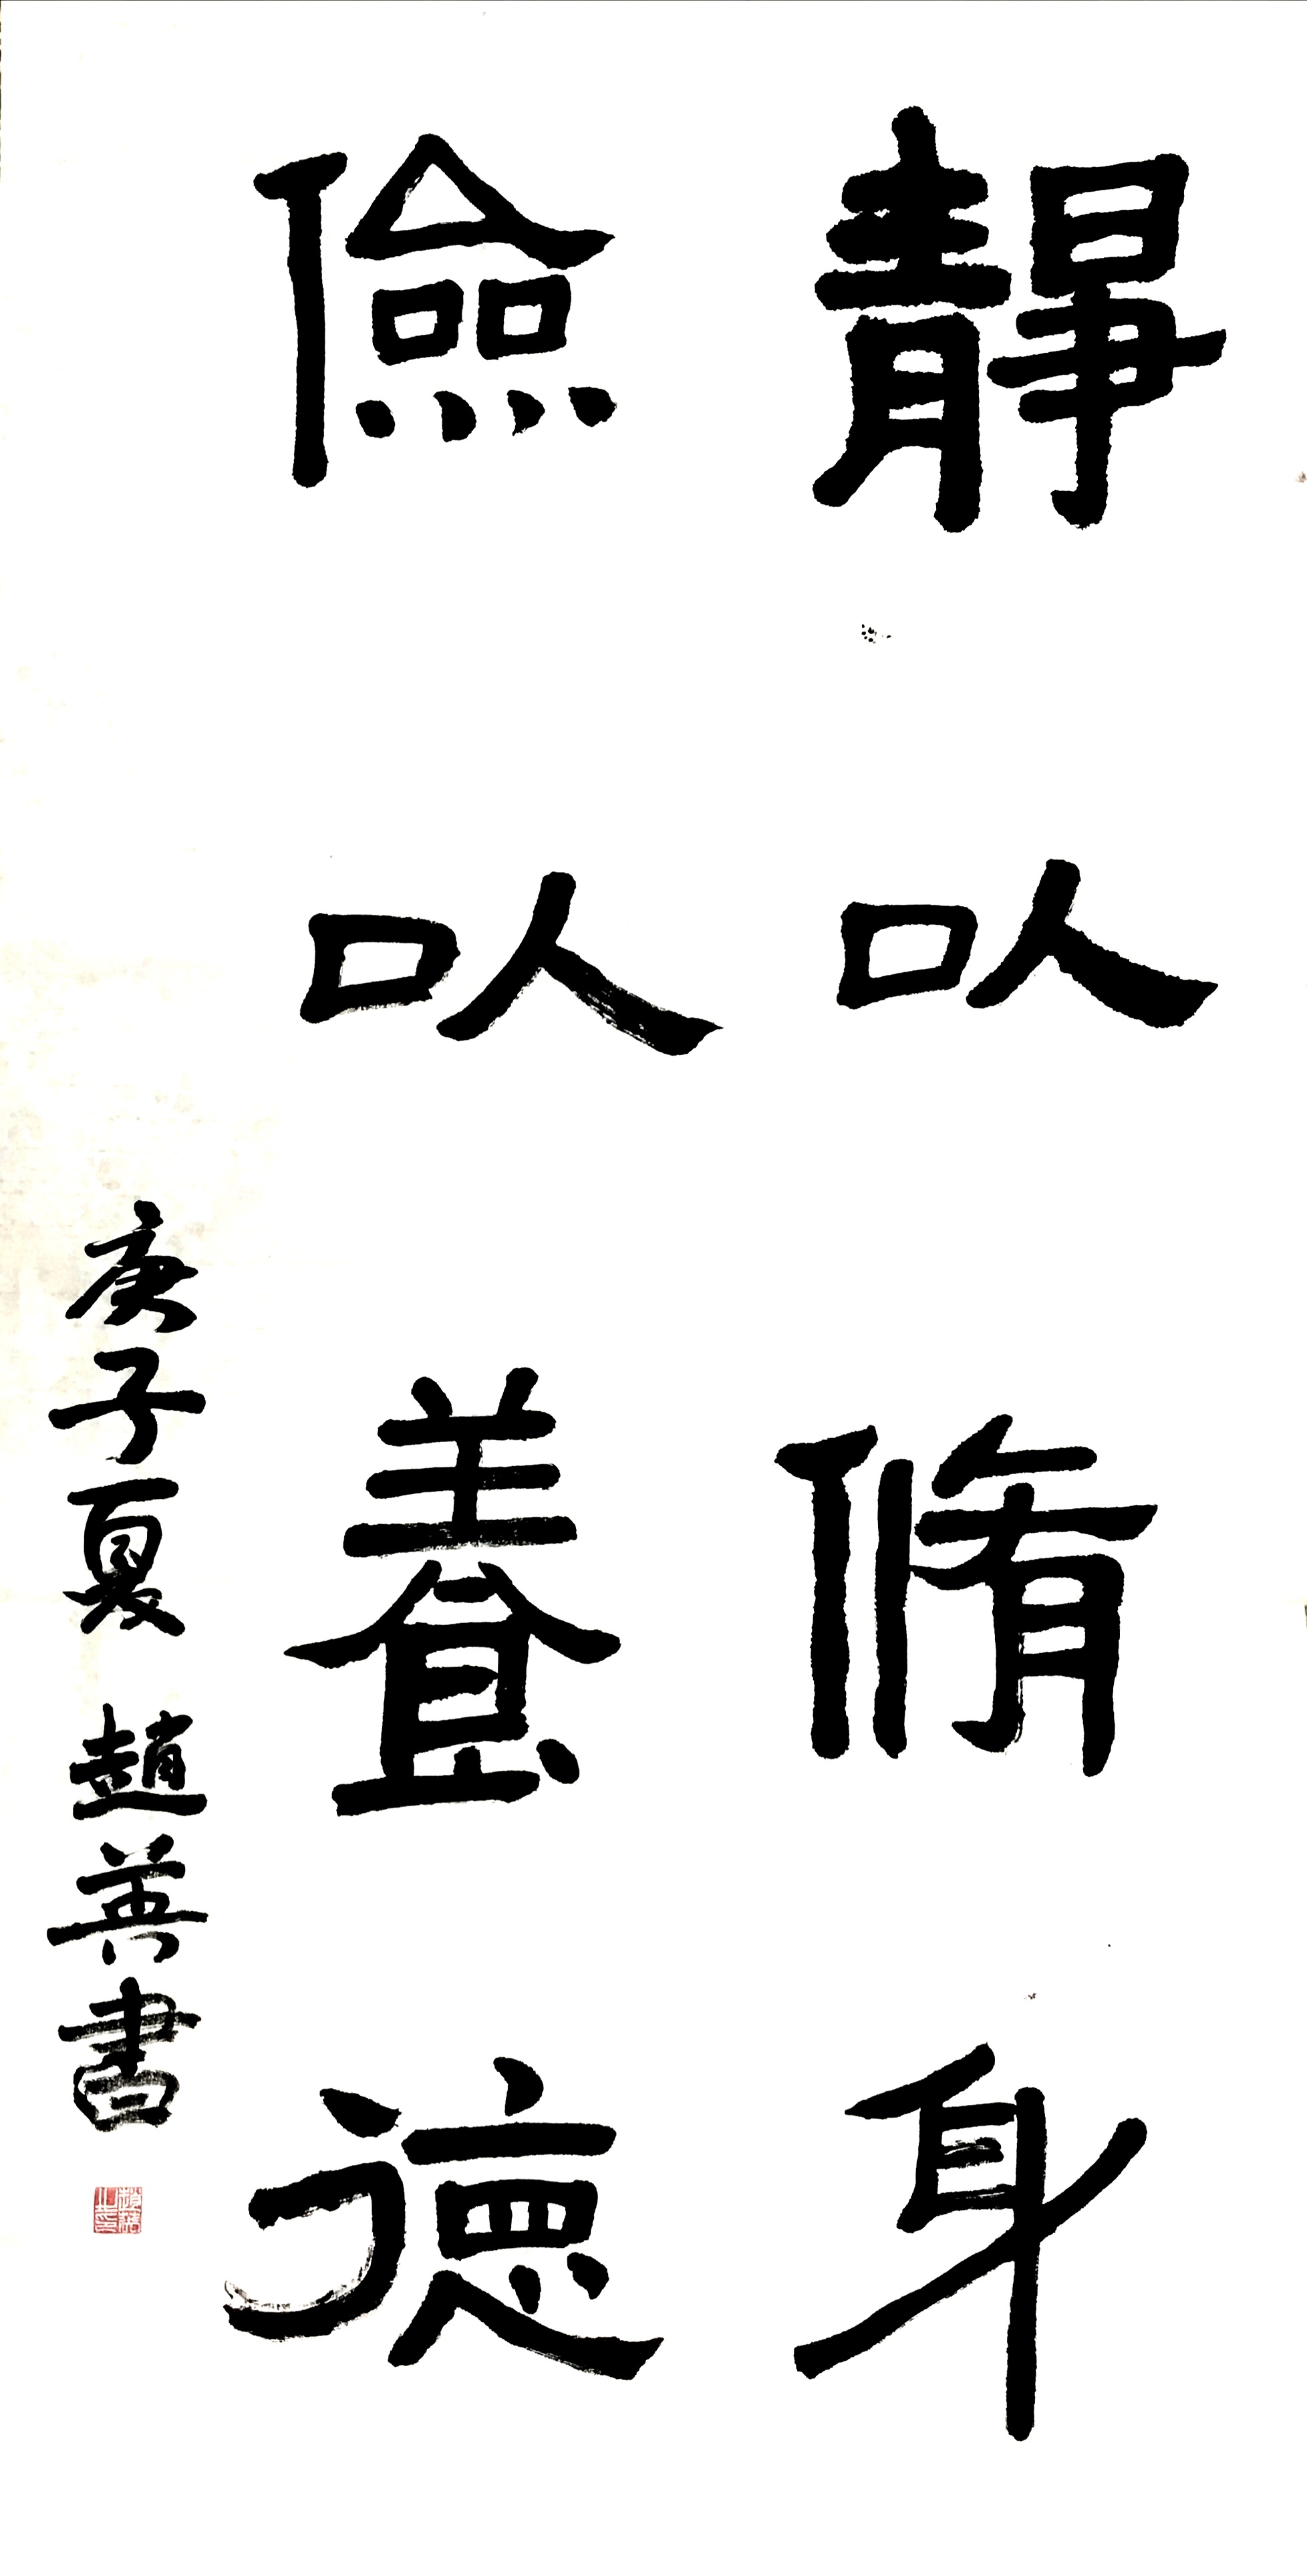 靜以脩身
儉以養德
庚子夏 趙英書